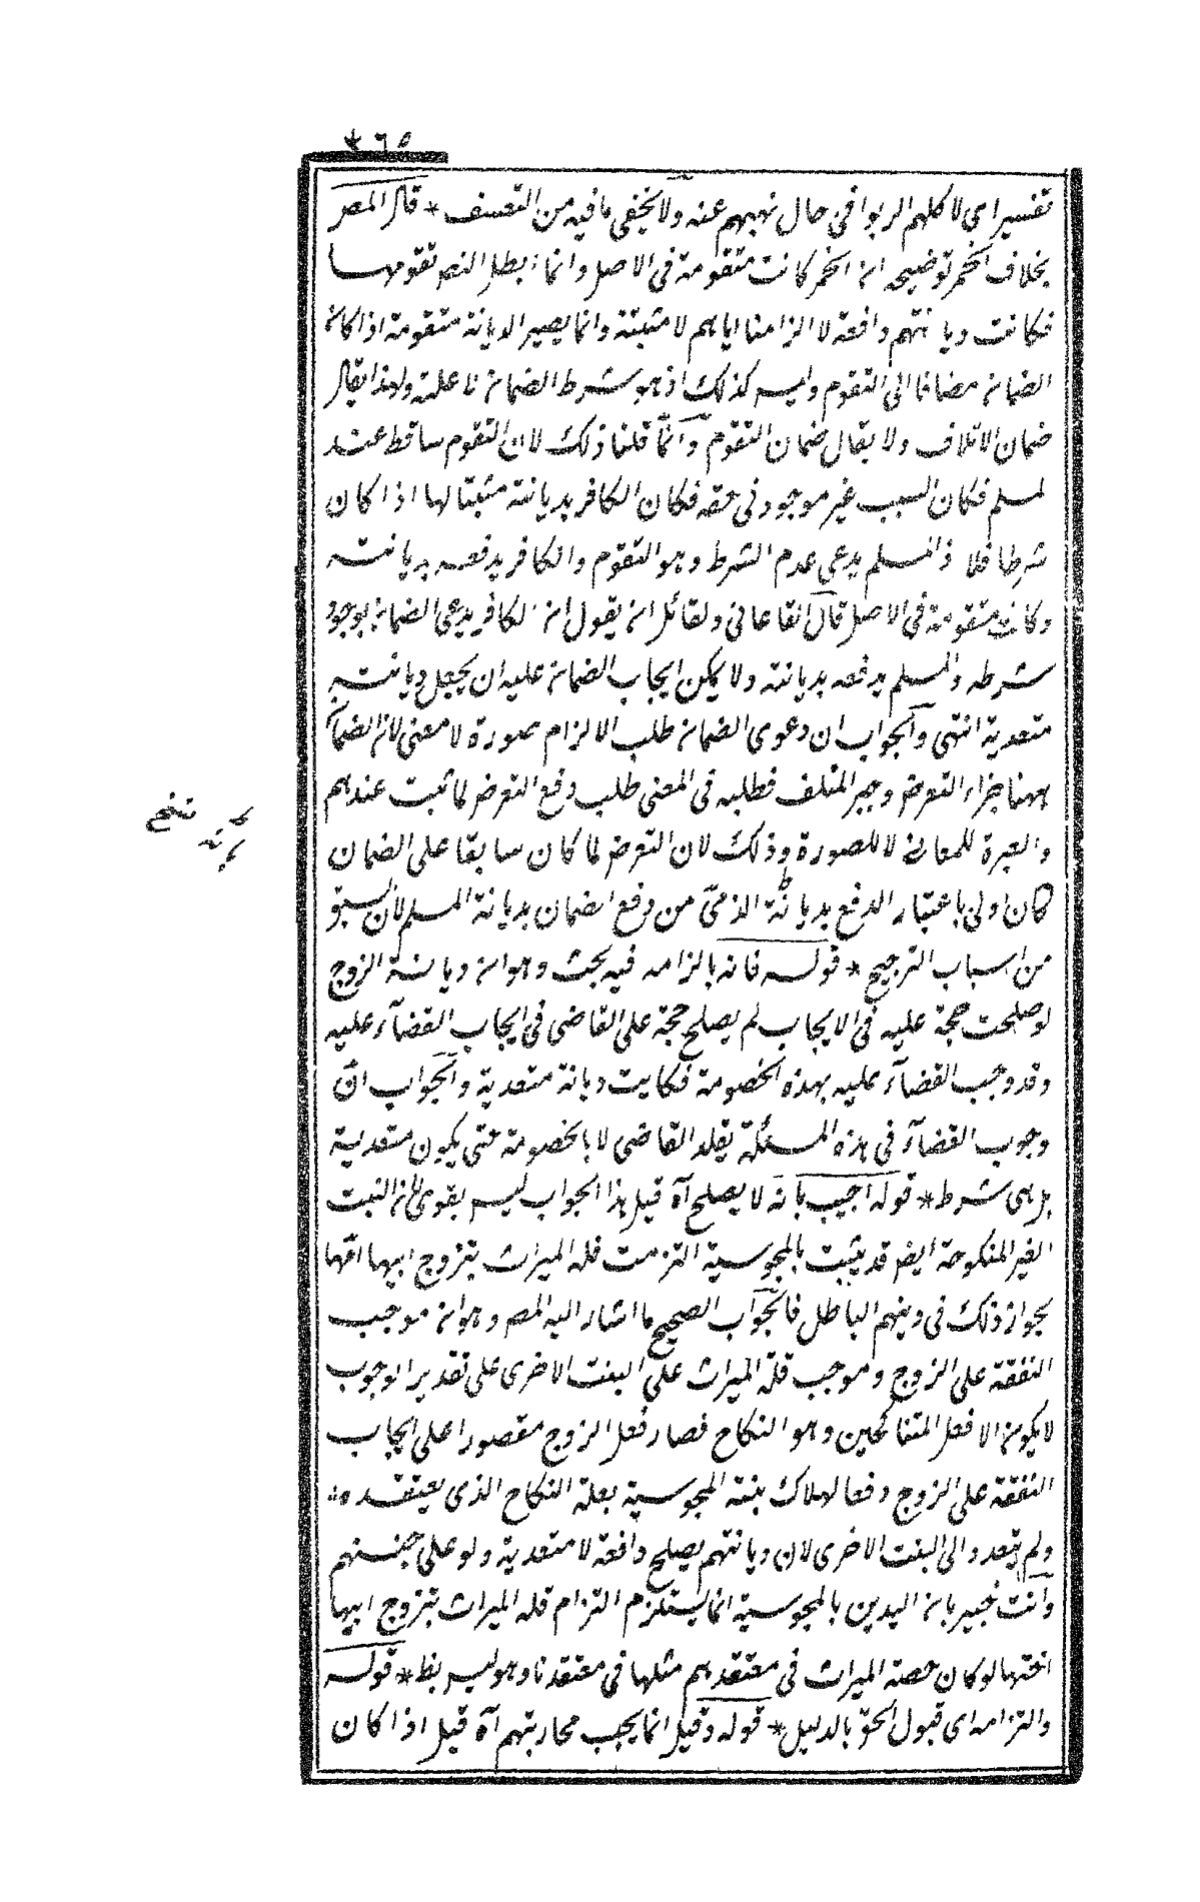 ٣٦٥
تفسيرا اي لاكلهم الربوا في حال نهيهم عنه ولا يخفى ما فيه من التعسف * قال المص
بخلاف الخمر توضيحه ان الخمر كانت متقومة في الاصل وانما ابطل النص تقومها
فكانت ديانتهم دافعة لالزامنا اياهم لا مثبتة وانما يصير الديانة متقومة اذا كان
الضمان مضافا الى التقوم وليس كذلك اذ هو شرط الضمان لا علته ولهذا يقال
ضمان الاتلاف ولا يقال ضمان التقوم وانما قلنا ذلك لان التقوم ساقط عند
لمسلم فكان السبب غير موجود في حقه فكان الكافر بديانته مثبتا لها اذا كان
شرطا فلا فالمسلم يدعي عدم الشرط وهو التقوم والكافر يدفعه بديانته
وكانت متقومة في الاصل قال القاءاني ولقائل ان يقول ان الكافر يدعى الضمان بوجود
شرطه والمسلم يدفعه بديانته ولا يمكن ايجاب الضمان عليه ان يجعل ديانته
متعدية انتهى والجواب ان دعوى الضمان طلب الالزام صورة لا معنى لان الضمان
ههنا جزاء التعرض وجبر المتلف فطلبه في المعنى طلب دفع التعرض لما ثبت عندهم
والعبرة للمعاني لا للصورة وذلك لان التعرض لما كان سابقا على الضمان
كان اولى باعتبار الدفع بديانة الذمى من دفع الضمان بديانة المسلم لان السبق
من اسباب الترجيح * قوله فانه بالزامه فيه بحث وهو ان ديانة الزوج
لو صلحت حجة عليه في الايجاب لم يصلح حجة على القاضى في ايجاب القضاء عليه
وقد وجب القضاء عليه بهذه الخصومة فكانت ديانة متعدية والجواب ان
وجوب القضاء في هذه المسئلة بتقلد القاضى لا بالخصومة حتى يكون متعدية
بل هى شرط * قوله اجيب بانه لا يصلح آه قيل هذا الجواب ليس بقوى لان البنت
الغير المنكوحة ايض قد يثبت بالمجوسية التزمت قلة الميراث بتزوج ابيها امها
بجواز ذلك في دينهم الباطل فالجواب الصحيح ما اشار اليه المص وهو ان موجب
النفقة على الزوج وموجب قلة الميراث على البنت الاخرى على تقدير الوجوب
لا يكون الا فعل المتناكحين وهو النكاح فصار فعل الزوج مقصورا على ايجاب
النفقة على الزوج دفعا لهلاك بنته المجوسية بعلة النكاح الذى يعتقده
ولم يتعد والى البنت الاخرى لان ديانتهم يصلح دافعة لا متعدية ولو على جنسهم
وانت خبير بان التدين بالمجوسية انما يستلزم التزام قلة الميراث بتزوج ابيها
اختها لو كان حصة الميراث في معتقدهم مثلها في معتقدنا وهو ليس بظ * قوله
والتزامه اى قبول الحق بالدليل * قوله وقيل انما يجب محاربتهم آه قيل اذا كان